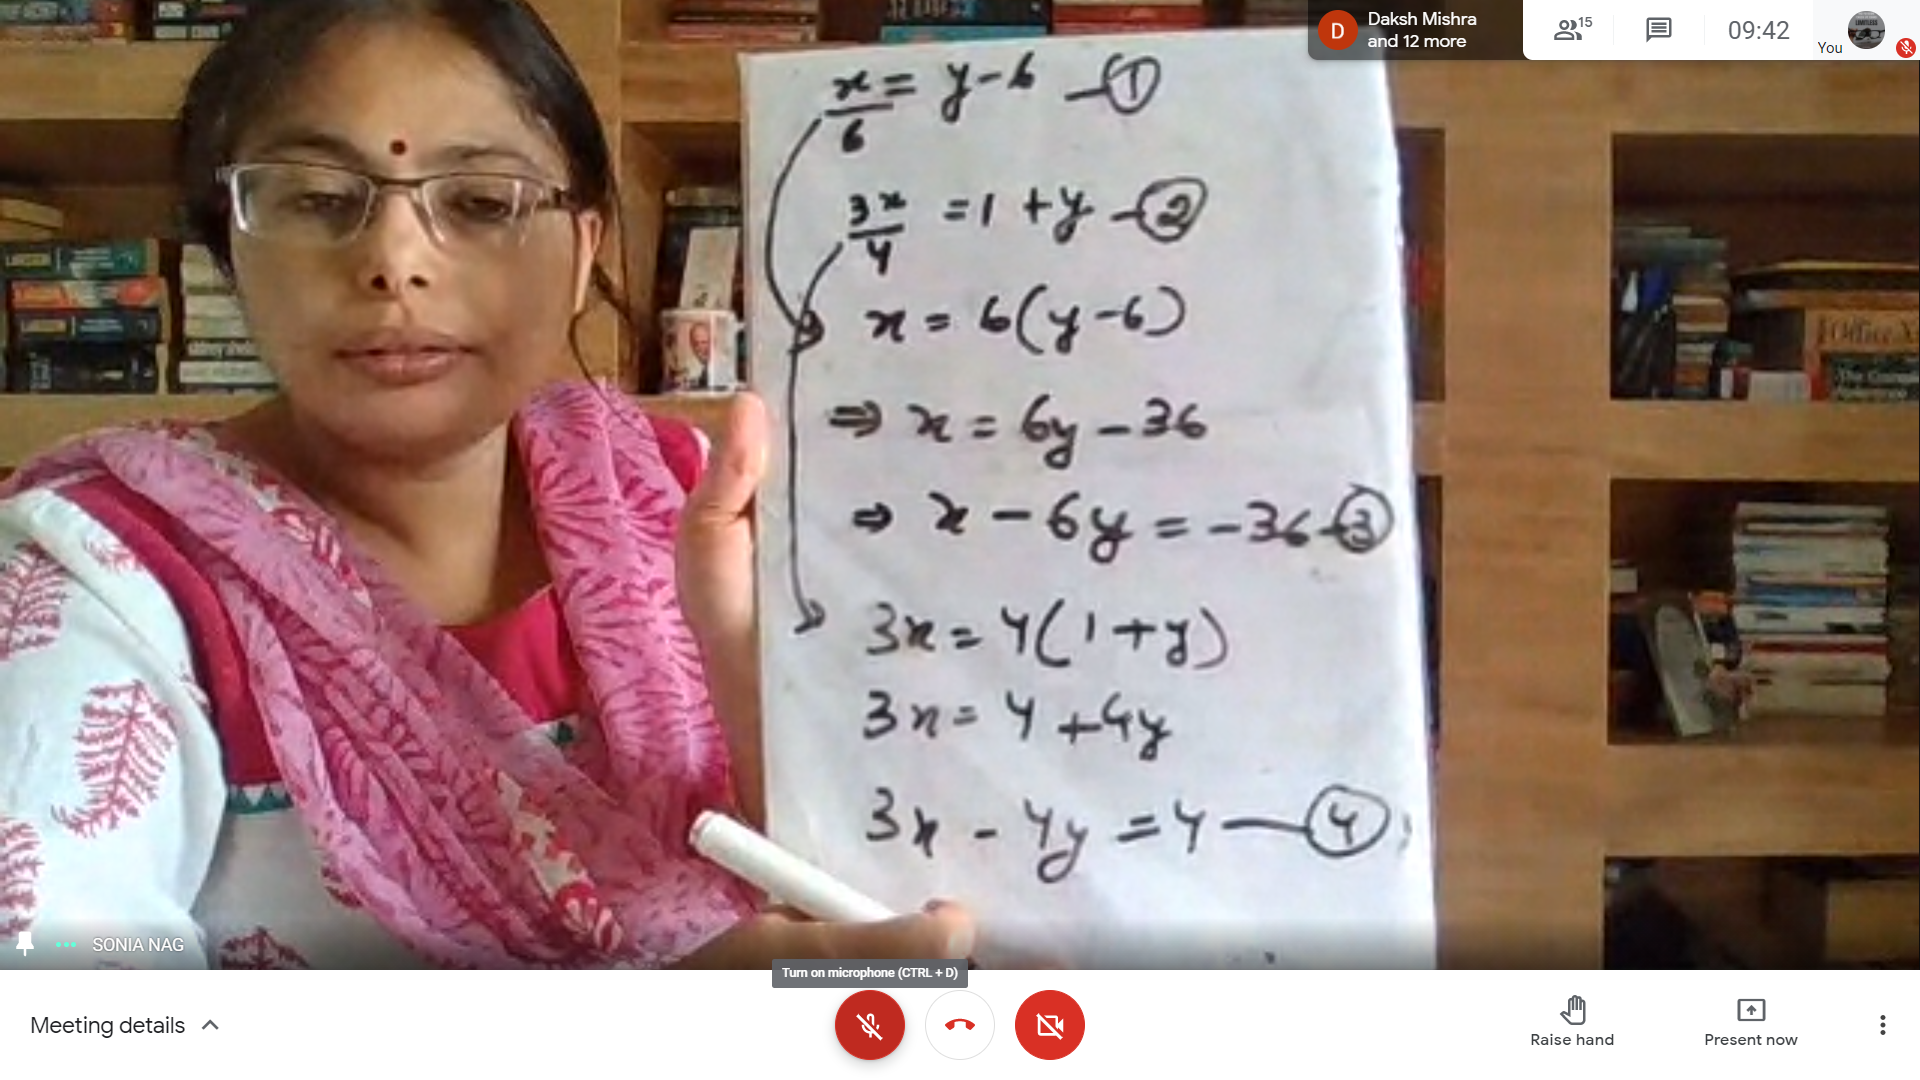 Daksh Mishra
and 12 more
D
15
09:42
You
x/6 = y - 6 — ①
3x/4 = 1 + y - ②
x = 6(y - 6)
⇒ x = 6y - 36
⇒ x - 6y = -36 - ③
3x = 4(1 + y)
3x = 4 + 4y
3x - 4y = 4 — ④
Office X
SONIA NAG
Turn on microphone (CTRL + D)
Meeting details
Raise hand
Present now